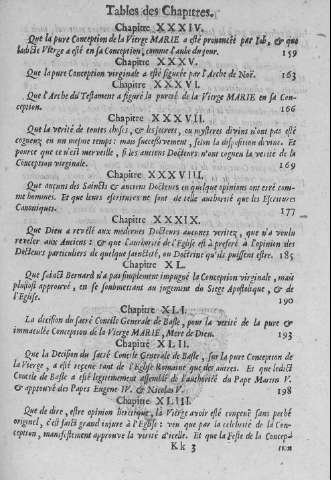 Tables des Chapitres.
Chapitre XXXIV.
Que la pure Conception de la Vierge MARIE a esté prononcée par Iob, & que
ladicte Vierge a esté en sa Conception, comme l'aube du jour. 159
Chapitre XXXV.
Que la pure Conception virginale a esté figurée par l'Arche de Noë. 163
Chapitre XXXVI.
Que l'Arche du Testament a figuré la pureté de la Vierge MARIE en sa Con-
ception. 166
Chapitre XXXVII.
Que la verité de toutes choses, & les secrets, ou mysteres divins n'ont pas esté
cogneuz en un mesme temps: mais successivement, selon la disposition divine. Et
pource que ce n'est merveille, si les anciens Docteurs n'ont cogneu la verité de la
Conception virginale. 169
Chapitre XXXVIII.
Que aucuns des Saincts & anciens Docteurs en quelque opinions ont erré com-
me hommes. Et que leurs escritures ne sont de telle authorité que les Escritures
Canoniques. 177
Chapitre XXXIX.
Que Dieu a revélé aux modernes Docteurs aucunes veritez, que n'a voulu
reveler aux Anciens: & que l'authorité de l'Eglise est à preferé à l'opinion des
Docteurs particuliers de quelque saincteté, ou Doctrine qu'ils puissent estre. 185
Chapitre XL.
Que sainct Bernard n'a pas simplement impugné la Conception virginale, mais
plustost approuvé, en se soubmettant au jugement du Siege Apostolique, & de
l'Eglise. 190
Chapitre XLI.
La decision du sacré Concile Generale de Basle, pour la verité de la pure &
immaculée Conception de la Vierge MARIE, Mere de Dieu. 193
Chapitre XLII.
Que la Decision du Sacré Concile Generale de Basle, sur la pure Conception de
la Vierge, a esté receuë tant de l'Eglise Romaine que des autres. Et que ledict
Concile de Basle a esté legitimement assemblé de l'authorité du Pape Martin V.
& approuvé des Papes Eugene IV. & Nicolas V. 198
Chapitre XLIII.
Que de dire, estre opinion hereticque, la Vierge avoir esté conceuë sans peché
originel, c'est faict grand injure à l'Eglise: veu que par la celebrité de la Con-
ception, manifestement approuve la verité d'icelle. Et que la Feste de la Concep-
Kk 3